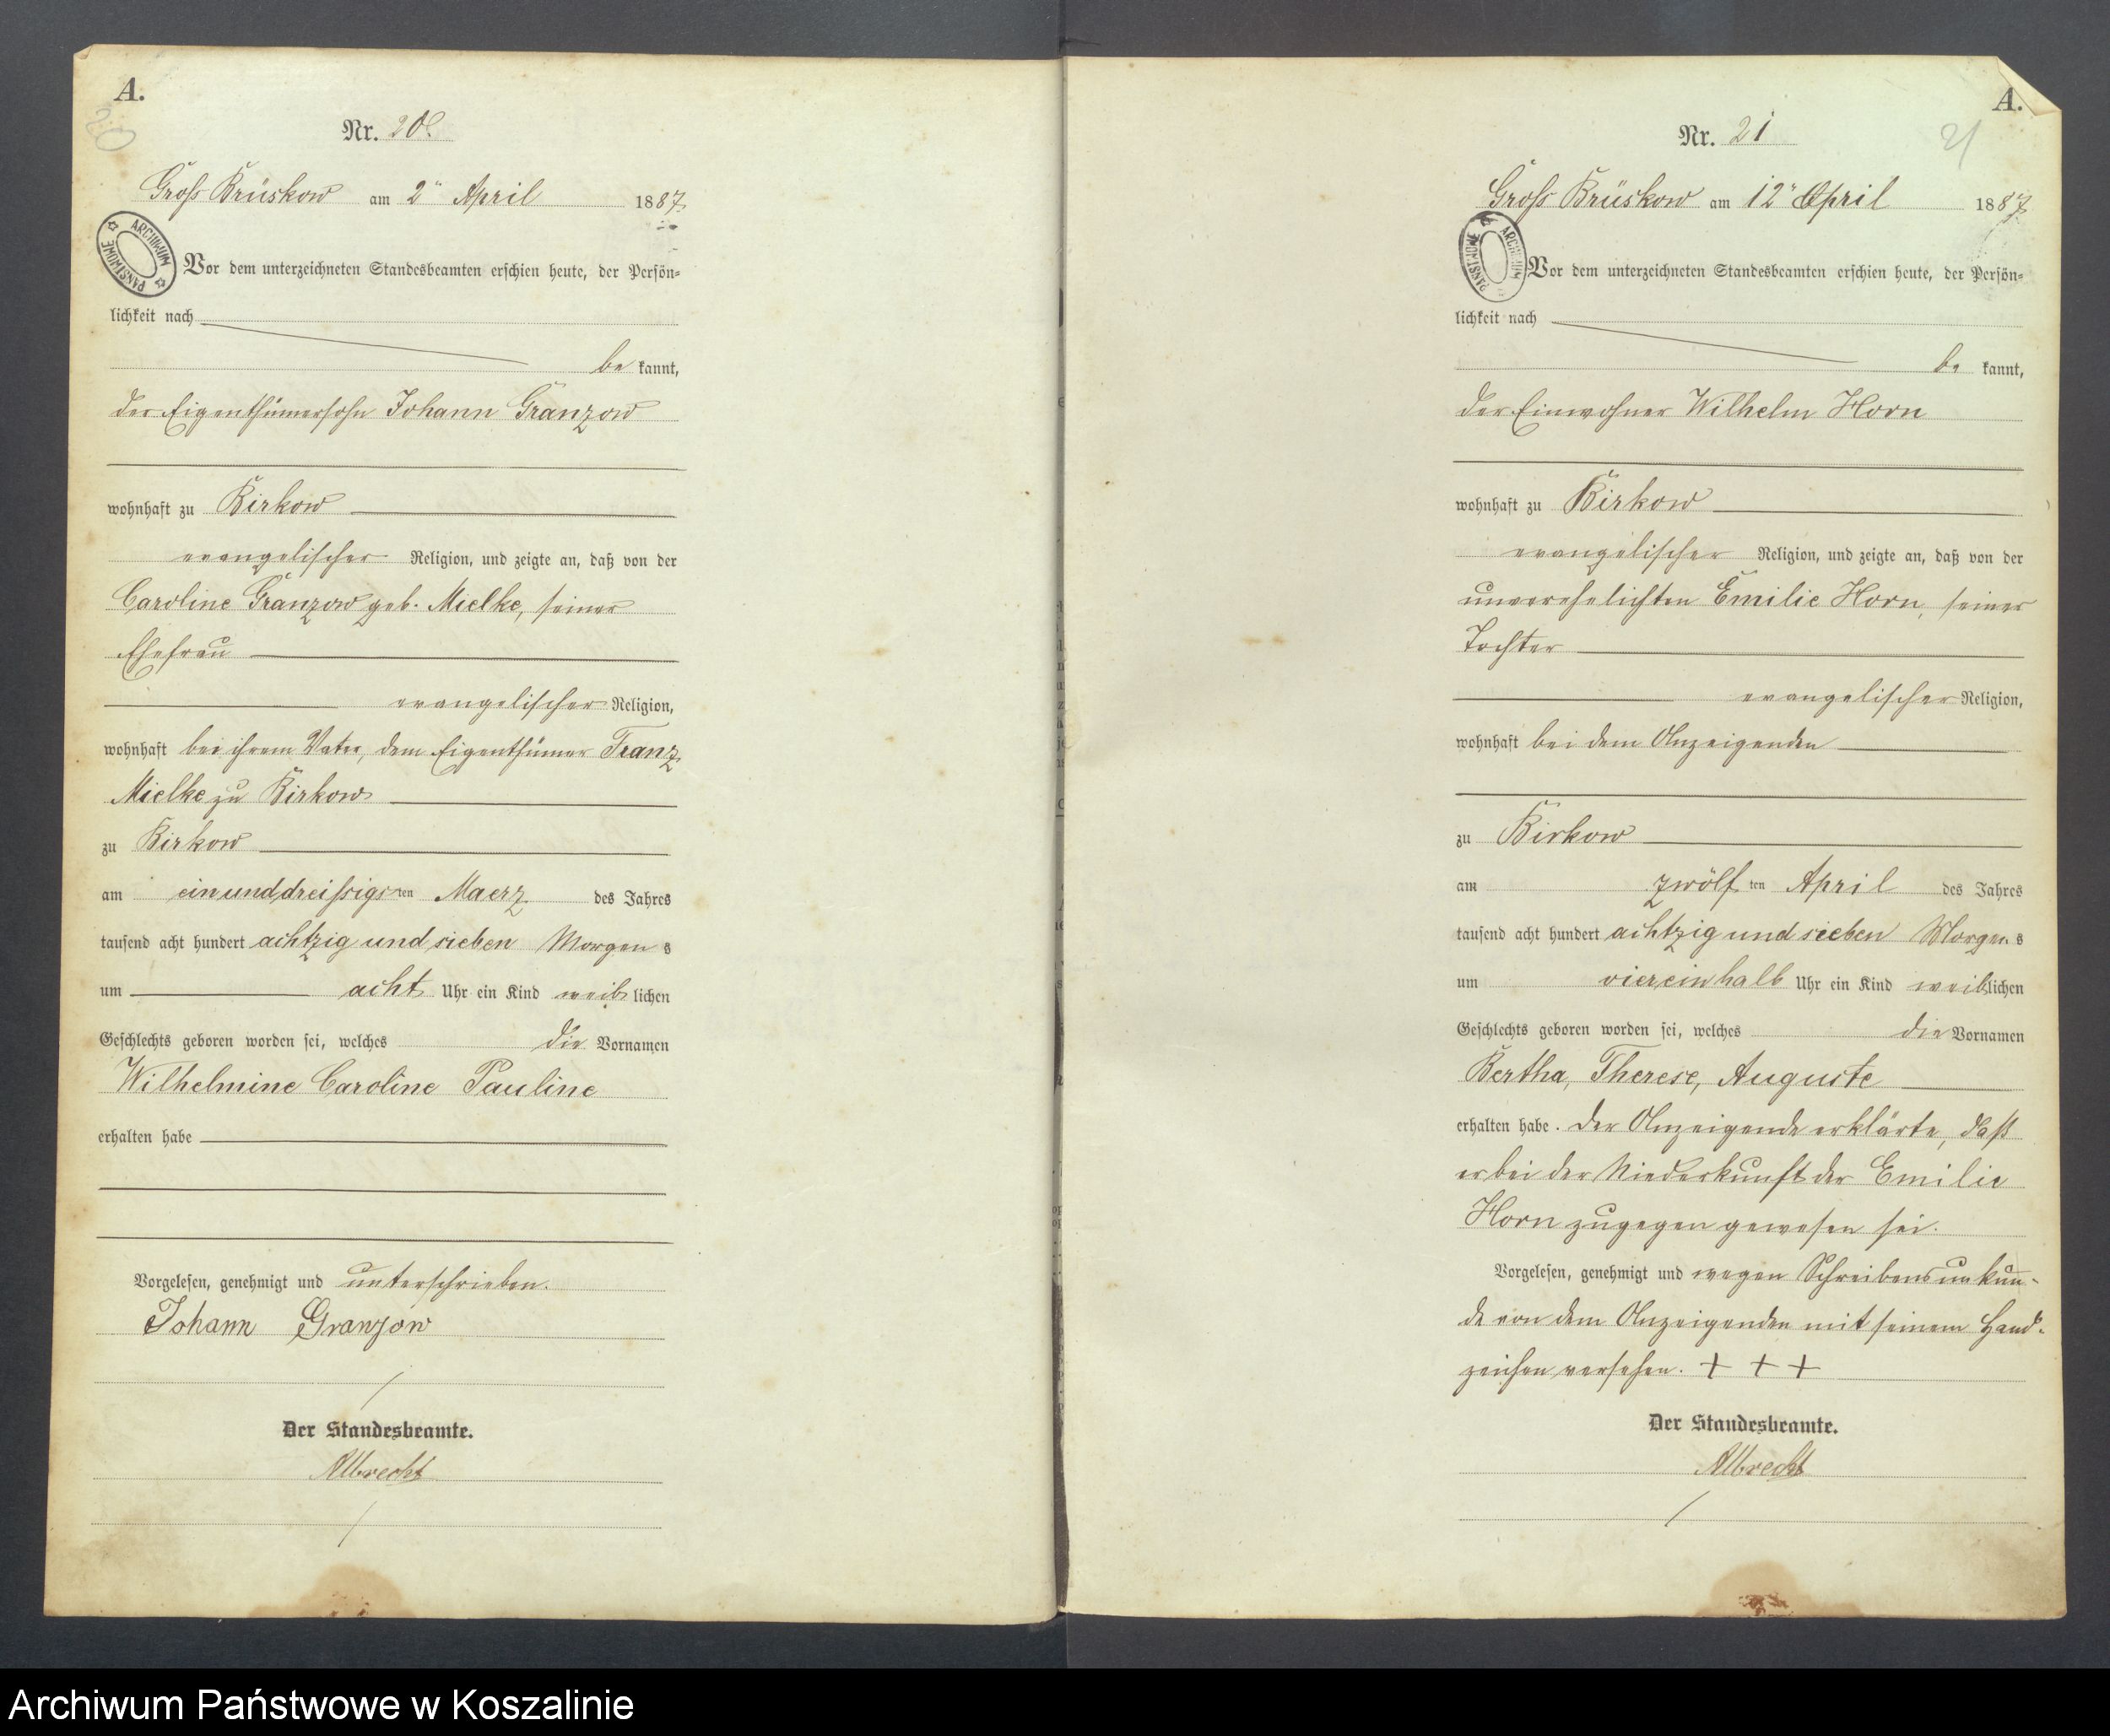 A.
20
Nr. 20.
Gross Brüskow am 2ten April 1887.
ARCHIWUM PAŃSTWOWE
Vor dem unterzeichneten Standesbeamten erschien heute, der Persön-
lichkeit nach
be kannt,
der Eigenthümersohn Johann Granzow
wohnhaft zu Birkow
evangelischer Religion, und zeigte an, daß von der
Caroline Granzow geb. Mielke, seiner
Ehefrau
evangelischer Religion,
wohnhaft bei ihrem Vater, dem Eigenthümer Franz
Mielke zu Birkow
zu Birkow
am einunddreissigsten Maerz des Jahres
tausend acht hundert achtzig und sieben Morgens
um acht Uhr ein Kind weiblichen
Geschlechts geboren worden sei, welches die Vornamen
Wilhelmine Caroline Pauline
erhalten habe
Vorgelesen, genehmigt und unterschrieben.
Johann Granzow
Der Standesbeamte.
Albrecht
A.
21
Nr. 21
Gross Brüskow am 12ten April 1887.
ARCHIWUM PAŃSTWOWE
Vor dem unterzeichneten Standesbeamten erschien heute, der Persön-
lichkeit nach
be kannt,
der Einwohner Wilhelm Horn
wohnhaft zu Birkow
evangelischer Religion, und zeigte an, daß von der
unverehelichten Emilie Horn, seiner
Tochter
evangelischer Religion,
wohnhaft bei dem Anzeigenden
zu Birkow
am zwölften April des Jahres
tausend acht hundert achtzig und sieben Morgens
um viereinhalb Uhr ein Kind weiblichen
Geschlechts geboren worden sei, welches die Vornamen
Bertha, Therese, Auguste
erhalten habe. Der Anzeigende erklärte, daß
er bei der Niederkunft der Emilie
Horn zugegen gewesen sei.
Vorgelesen, genehmigt und wegen Schreibensunkun-
de von dem Anzeigenden mit seinem Hand-
zeichen versehen. + + +
Der Standesbeamte.
Albrecht
Archiwum Państwowe w Koszalinie